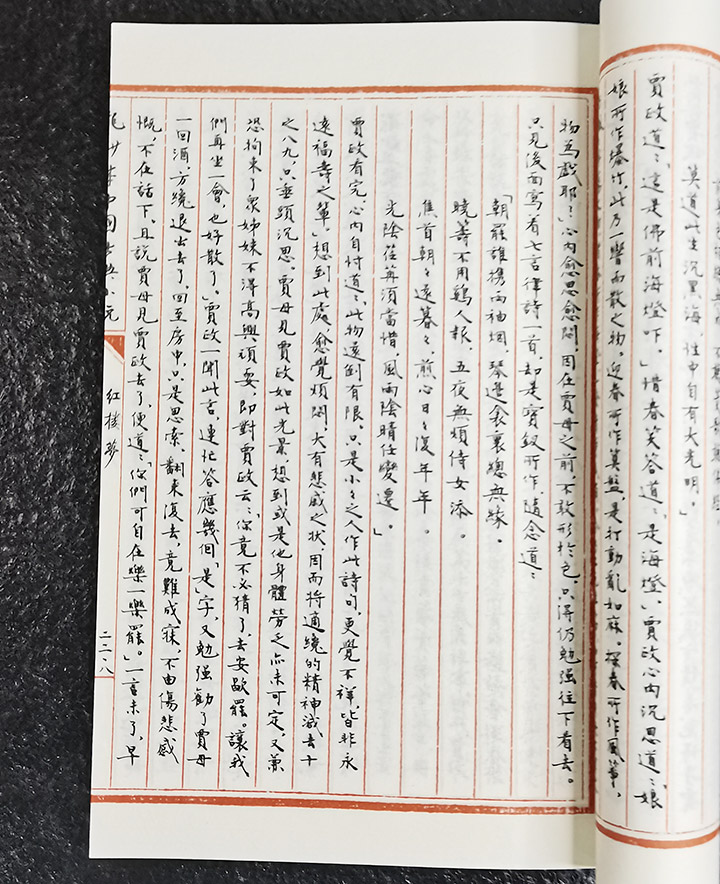 莫道此生沉黑海，性中自有大光明。」
賈政道：「這是佛前海燈吓。」惜春笑答道：「是海燈」、賈政心內沉思道：「娘
娘所作爆竹，此乃一響而散之物。迎春所作算盤，是打動亂如麻。探春所作風箏，
物為戲耶？」心內愈思愈悶，因在賈母之前，不敢形於色，只得仍勉強往下看去。
只見後面寫着七言律詩一首，却是寶釵所作，隨念道：
「朝罷誰携兩袖烟，琴邊衾裏總無緣。
曉籌不用鷄人報，五夜無煩侍女添。
焦首朝々還暮々，煎心日々復年年。
光陰荏苒須當惜，風雨陰晴任變遷。」
賈政看完，心內自忖道：「此物還倒有限，只是小々之人作此詩句，更覺不祥，皆非永
遠福壽之輩。」想到此處，愈覺煩悶，大有悲戚之狀，因而將適纔的精神減去十
之八九，只垂頭沉思。賈母見賈政如此光景，想到或是他身體勞乏亦未可定，又兼
恐拘束了衆姊妹不得高興頑耍，即對賈政云：「你竟不必猜了，去安歇罷。讓我
們再坐一會，也好散了。」賈政一聞此言，連忙答應幾個「是」字，又勉強勸了賈母
一回酒，方纔退出去了。回至房中，只是思索，翻來復去，竟難成寐，不由傷悲感
慨，不在話下。且說賈母見賈政去了，便道：「你們可自在樂一樂罷。」一言未了，早
紅樓夢
二二八